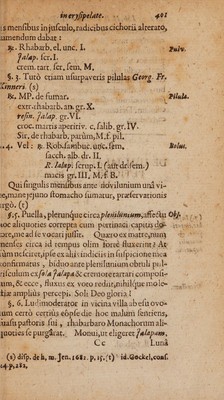 in erysipelate. 401
s mensibus in jusculo, radicibus cichorii alterato,
umendum dabat:
℞. Rhabarb. el. unc. I. Pulv.
Jalap. scr. I.
crem. tart. scr. sem. M,
§. 3. Tutò etiam usurpaveris pilulas Georg. Fr.
(2)
℞. MP. de fumar. Pilula.
extr. rhabarb. an. gr. X.
resin. jalap. gr. VI.
croc. martis aperitiv. c. salib. gr. IV.
Sir. de rhabarb. parùm, M. f. pil.
4. Vel: ℞. Rob. sambuc. unc. sem. Bolus.
sacch. alb. dr. II.
R. Jalap. scrup. I. (aut dr. sem.)
macis gr. III, M. f. B.
Qui singulis mensibus ante noviluniun unâ vi-
mane jejuno stomacho sumatur, præservationis
ergò. (1)
§. 5. Puella, plerunque circa plenilunium, affectu Obs.
hoc aliquoties correpta cum pertinaci capitis do-
me ad se vocari jussit. Quæro ex matre, num
menses circa id tempus olim forte fluxerint? At
nesciret, ipse ex aliis indiciis in suspicione mea
confirmatus, biduo ante plenilunium obtuli pul-
visculum ex sola jalapa & cremore tartari composi-
um, & ecce, fluxus ex voto rediit, nihilque mole-
tiæ ampliùs percepi. Soli Deo gloria!
§. 6. Ludimoderator in vicina villa obesus ovo-
um certò certiùs eôpse die hoc malum sentiens,
suasu pastoris sui, rhabarbaro Monachorum ali-
quoties se purgârat. Monui, ut eligeret jalapam,
Cc Lunâ
(1) disp. de h, m. Jen. 1681. p. 15. (2) id. Gockel. cons.
p. 282.